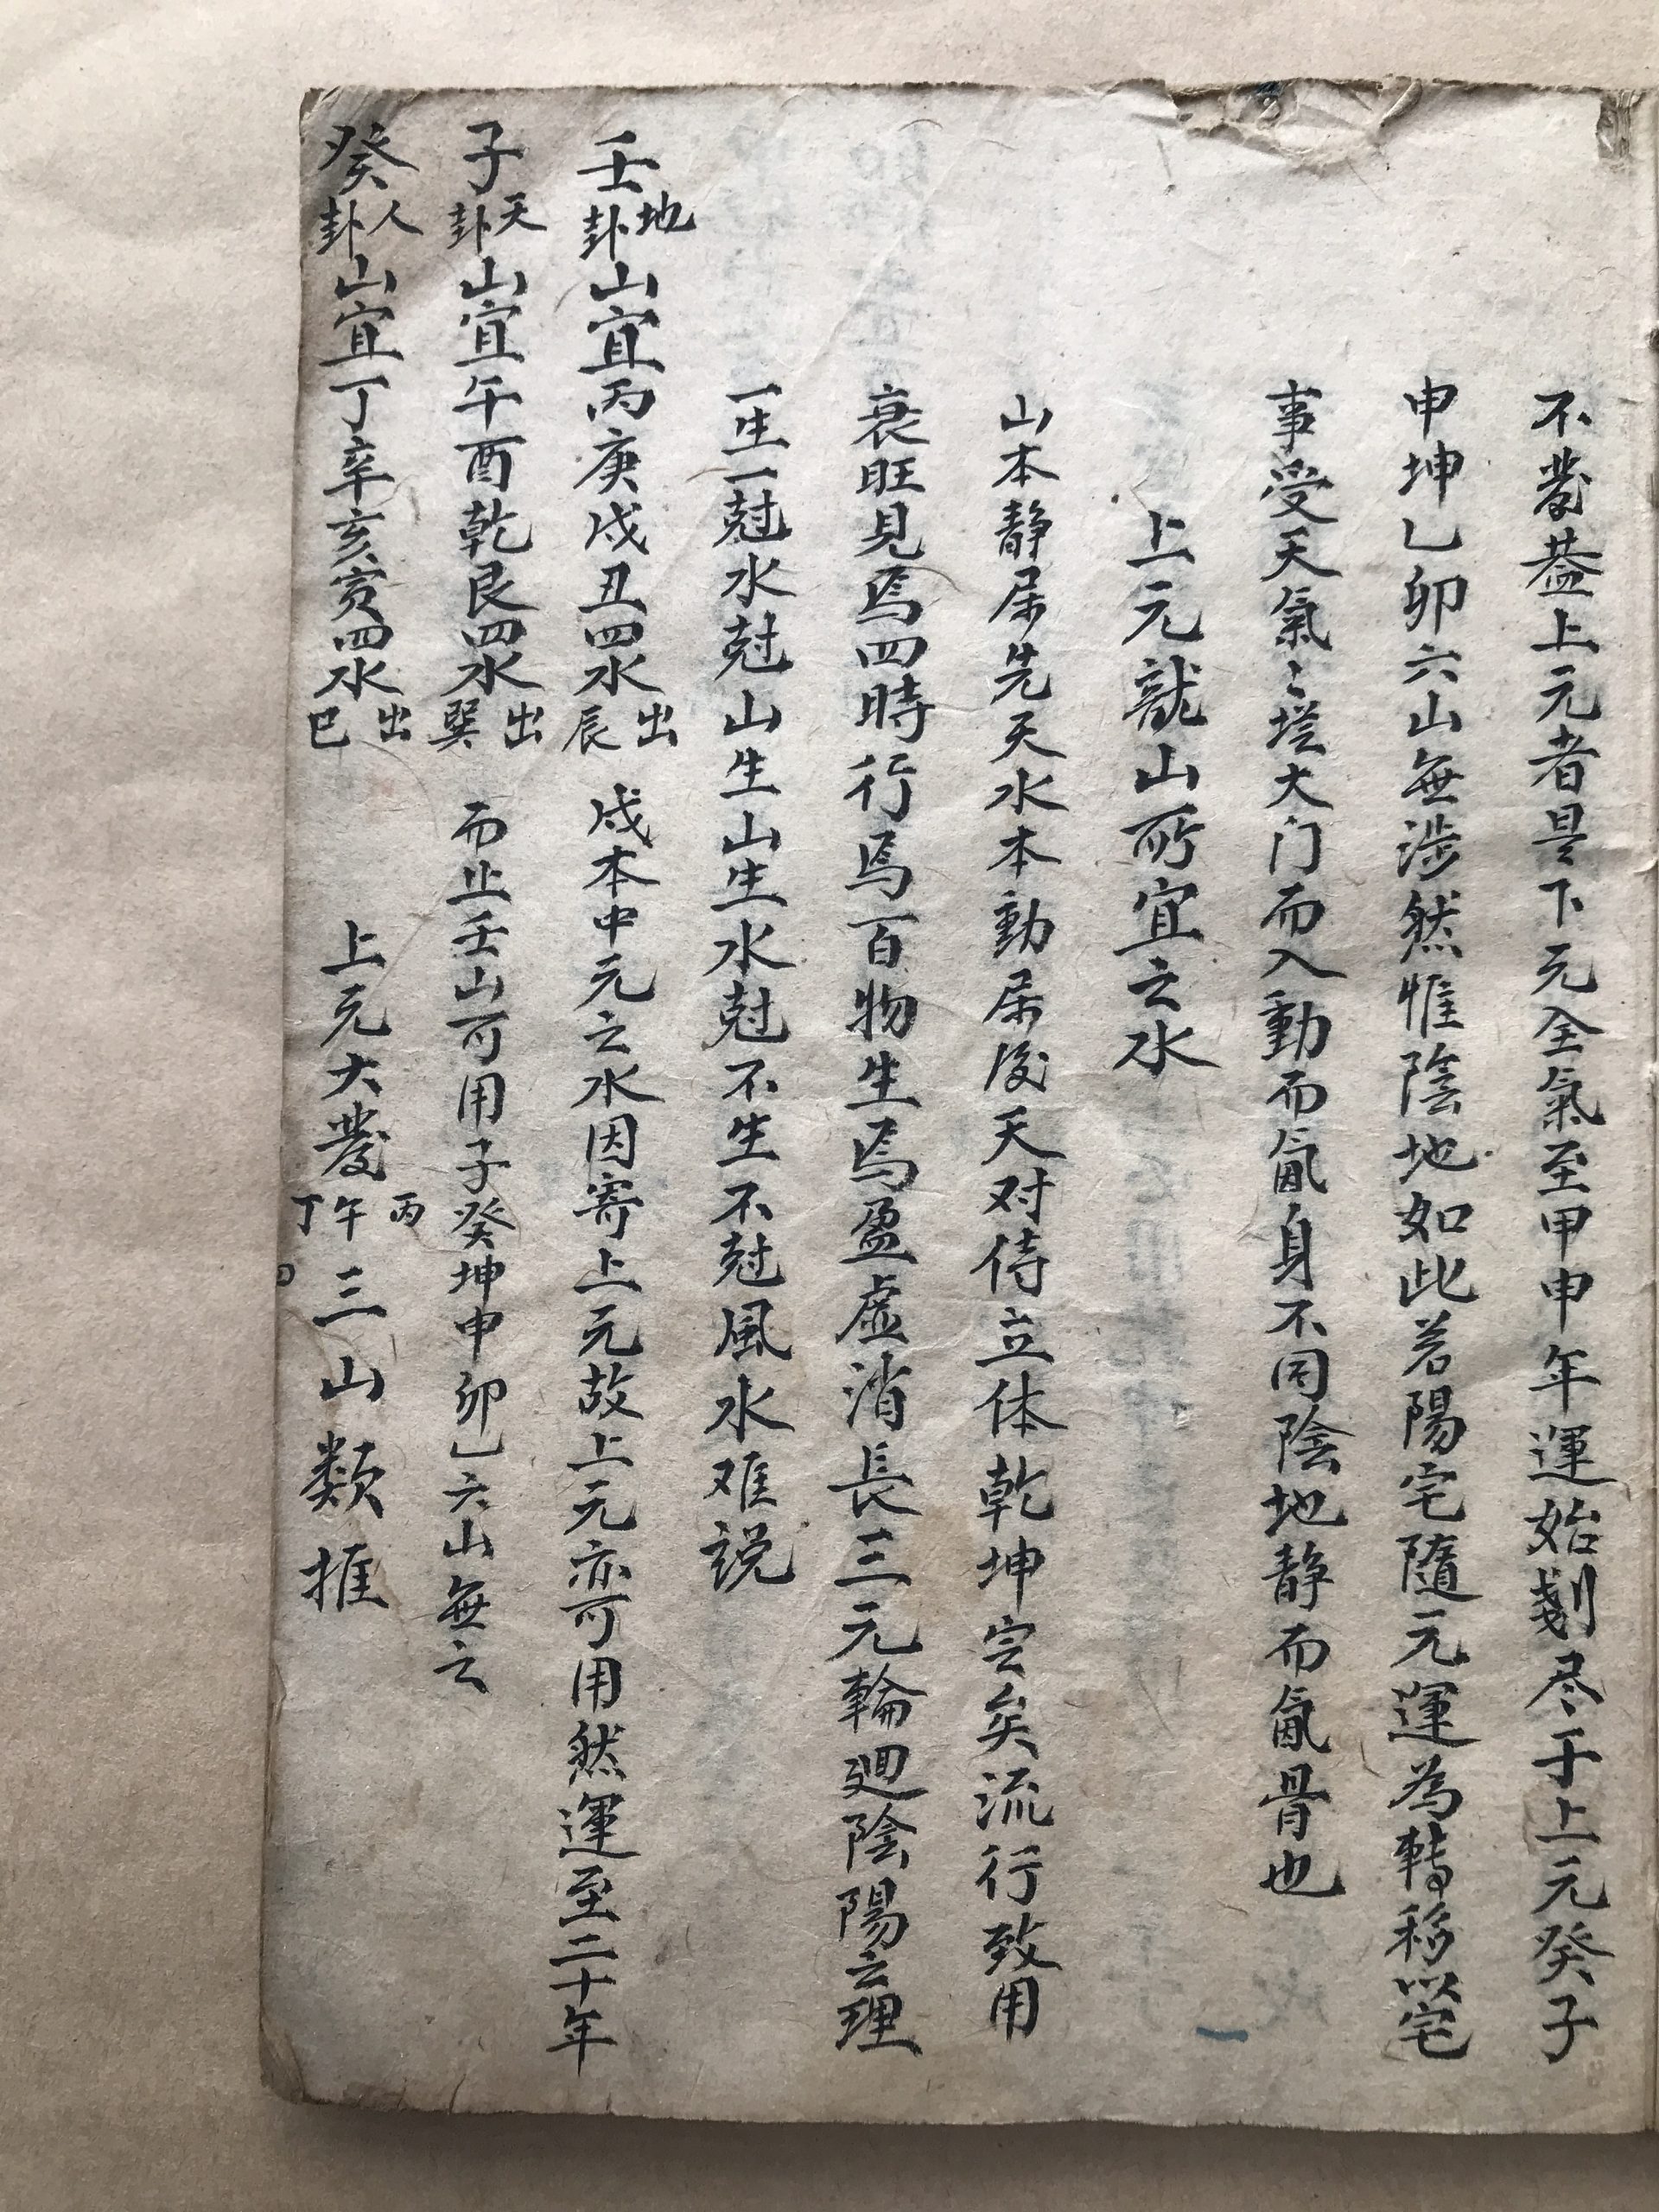 不發葢上元者是下元全氣至甲申年運始剗尽于上元癸子
申坤乙卯六山無涉然惟陰地如此若陽宅隨元運為轉移以宅
事受天氣〻從大门而入動而氤身不同陰地静而氤骨也
上元龍山所宜之水
山本静屬先天水本動屬後天对待立体乾坤定矣流行致用
衰旺見焉四時行焉百物生焉盈虚消長三元輪廻陰陽之理
一生一尅水尅山生山生水尅不生不尅風水难説
壬地卦山宜丙庚戌丑四水出辰 戌本中元之水因寄上元故上元亦可用然運至二十年
子天卦山宜午酉乾艮四水出巽 而止壬山可用子癸坤申卯乙六山無之
癸人卦山宜丁辛亥寅四水出巳 上元大發丙午丁三山類推